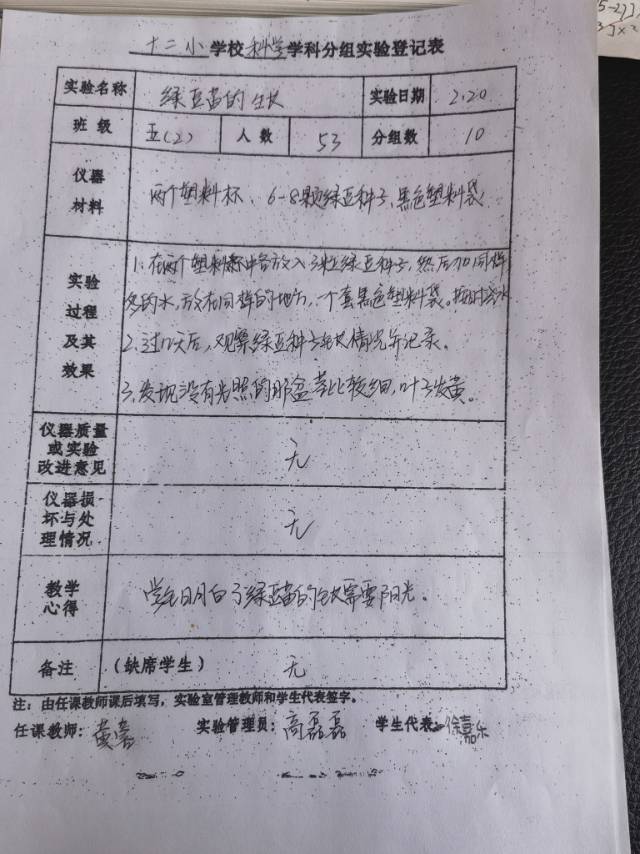 十二小学校科学学科分组实验登记表
实验名称 绿豆苗的生长 实验日期 2.20
班级 五(2) 人数 53 分组数 10
仪器材料 两个塑料杯、6-8颗绿豆种子、黑色塑料袋
实验过程及其效果
1.在两个塑料杯中各放入3粒绿豆种子,然后加同样
多的水,放在同样的地方,一个套黑色塑料袋。按时浇水
2.过几天后,观察绿豆种子生长情况并记录。
3.发现没有光照的那盆茎比较细,叶子发黄。
仪器质量或实验改进意见 无
仪器损坏与处理情况 无
教学心得 学生明白了绿豆苗的生长需要阳光。
备注 (缺席学生) 无
注:由任课教师课后填写,实验室管理教师和学生代表签字。
任课教师: 实验管理员:高磊磊 学生代表:徐嘉乐